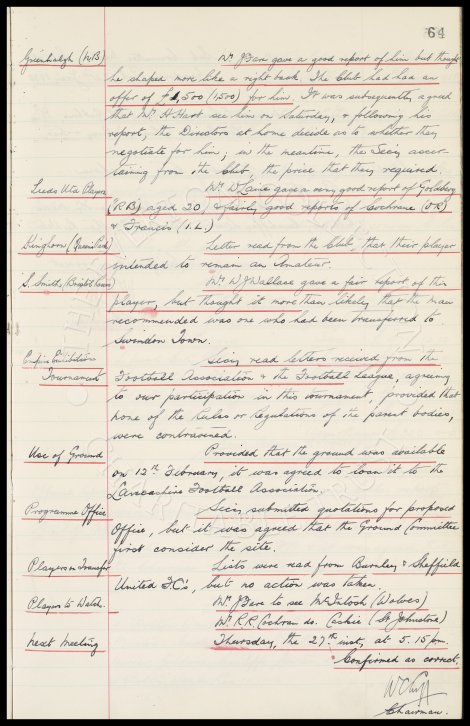 64
Greenhalgh (W.B) Mr. J Bare gave a good report of him but thought
he shaped more like a right back. The Club had had an
offer of £1,500 (1,500) for him. It was subsequently agreed
that Mr. H Hart see him on Saturday, & following his
report, the Directors at home decide as to whether they
negotiate for him; in the meantime, the Secy. ascer-
taining from the Club, the price that they required.
Leeds Utd Players Mr. W Lane gave a very good report of Goldberg
(R.B) aged 20) & fairly good reports of Cochrane (O.R)
& Francis (I.L.)
Kinghorn (Queens Park) Letter read from the Club, that their player
intended to remain an Amateur.
S. Smith (Bristol Rovers) Mr. W J Wallace gave a fair report of this
player, but thought it more than likely that the man
recommended was one who had been transferred to
Swindon Town.
Empire Exhibition Secy. read letters received from the
Tournament Football Association & the Football League, agreeing
to our participation in this tournament, provided that
none of the Rules or Regulations of the parent bodies,
were contravened.
Use of Ground Provided that the ground was available
on 12th February, it was agreed to loan it to the
Lancashire Football Association.
Programme Office Secy. submitted quotations for proposed
Office, but it was agreed that the Ground Committee
first consider the site.
Players on Transfer Lists were read from Burnley & Sheffield
United F.C's, but no action was taken
Players to Watch. Mr. J Bare to see McIntosh (Wolves)
Mr. R.R. Cochran do. Caskie (St Johnstone)
Next Meeting Thursday, the 27th inst, at 5.15 pm.
Confirmed as correct.
Chairman.